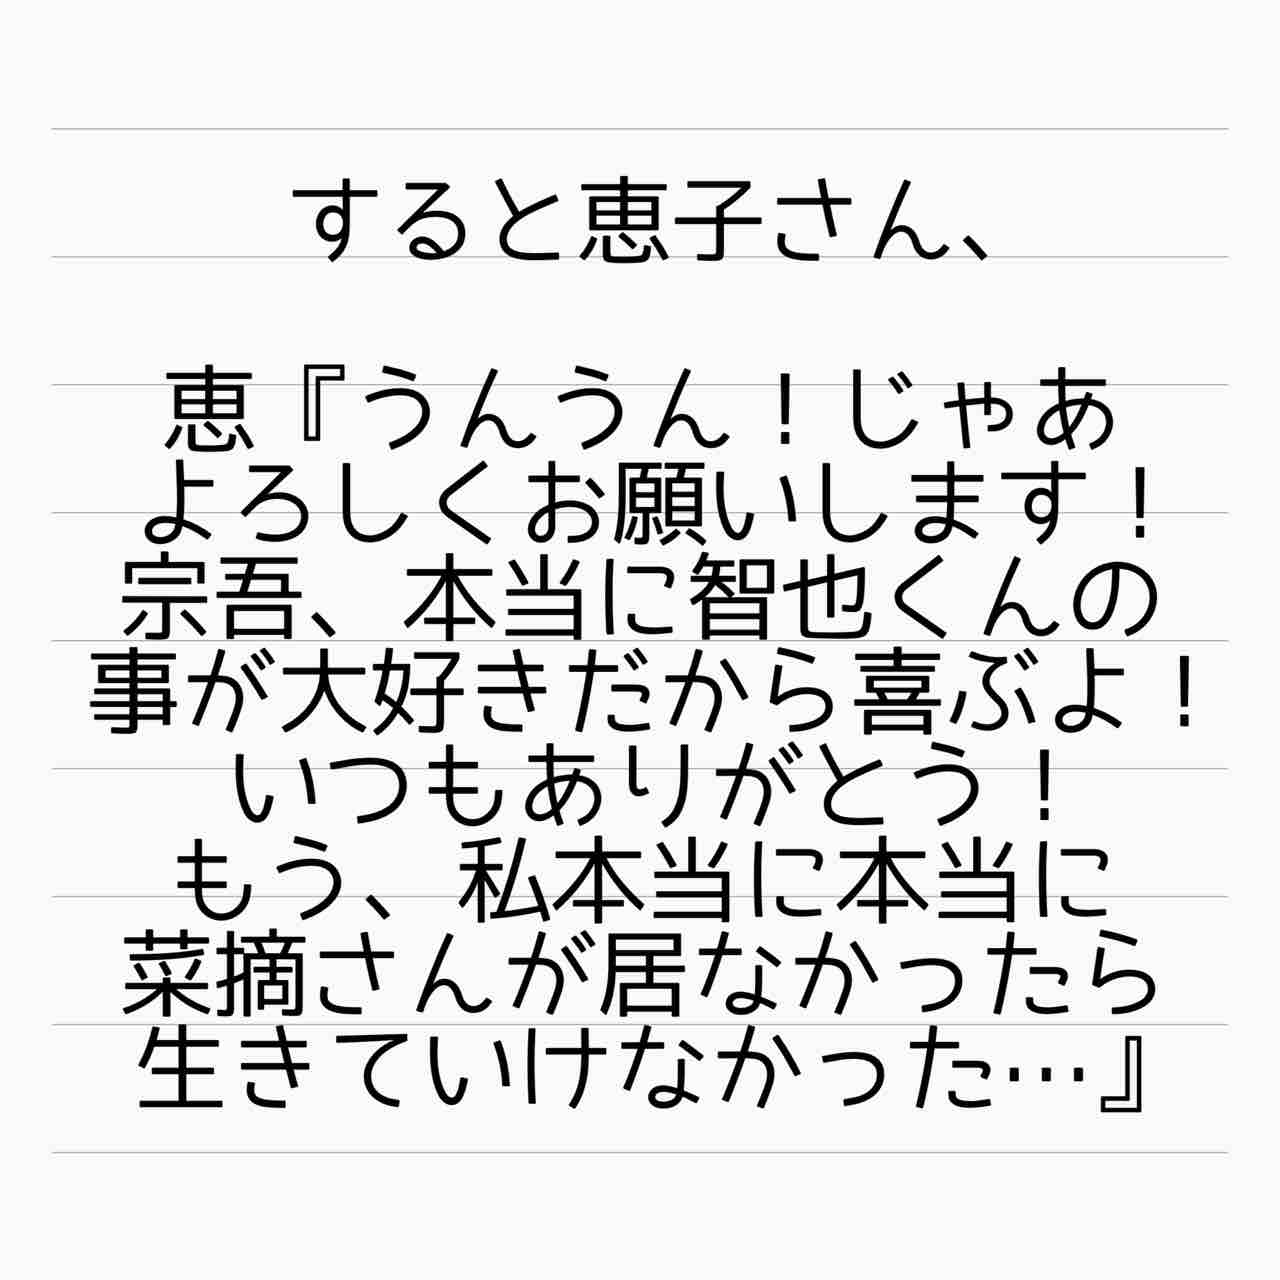 すると恵子さん、
恵『うんうん！じゃあ
よろしくお願いします！
宗吾、本当に智也くんの
事が大好きだから喜ぶよ！
いつもありがとう！
もう、私本当に本当に
菜摘さんが居なかったら
生きていけなかった…』